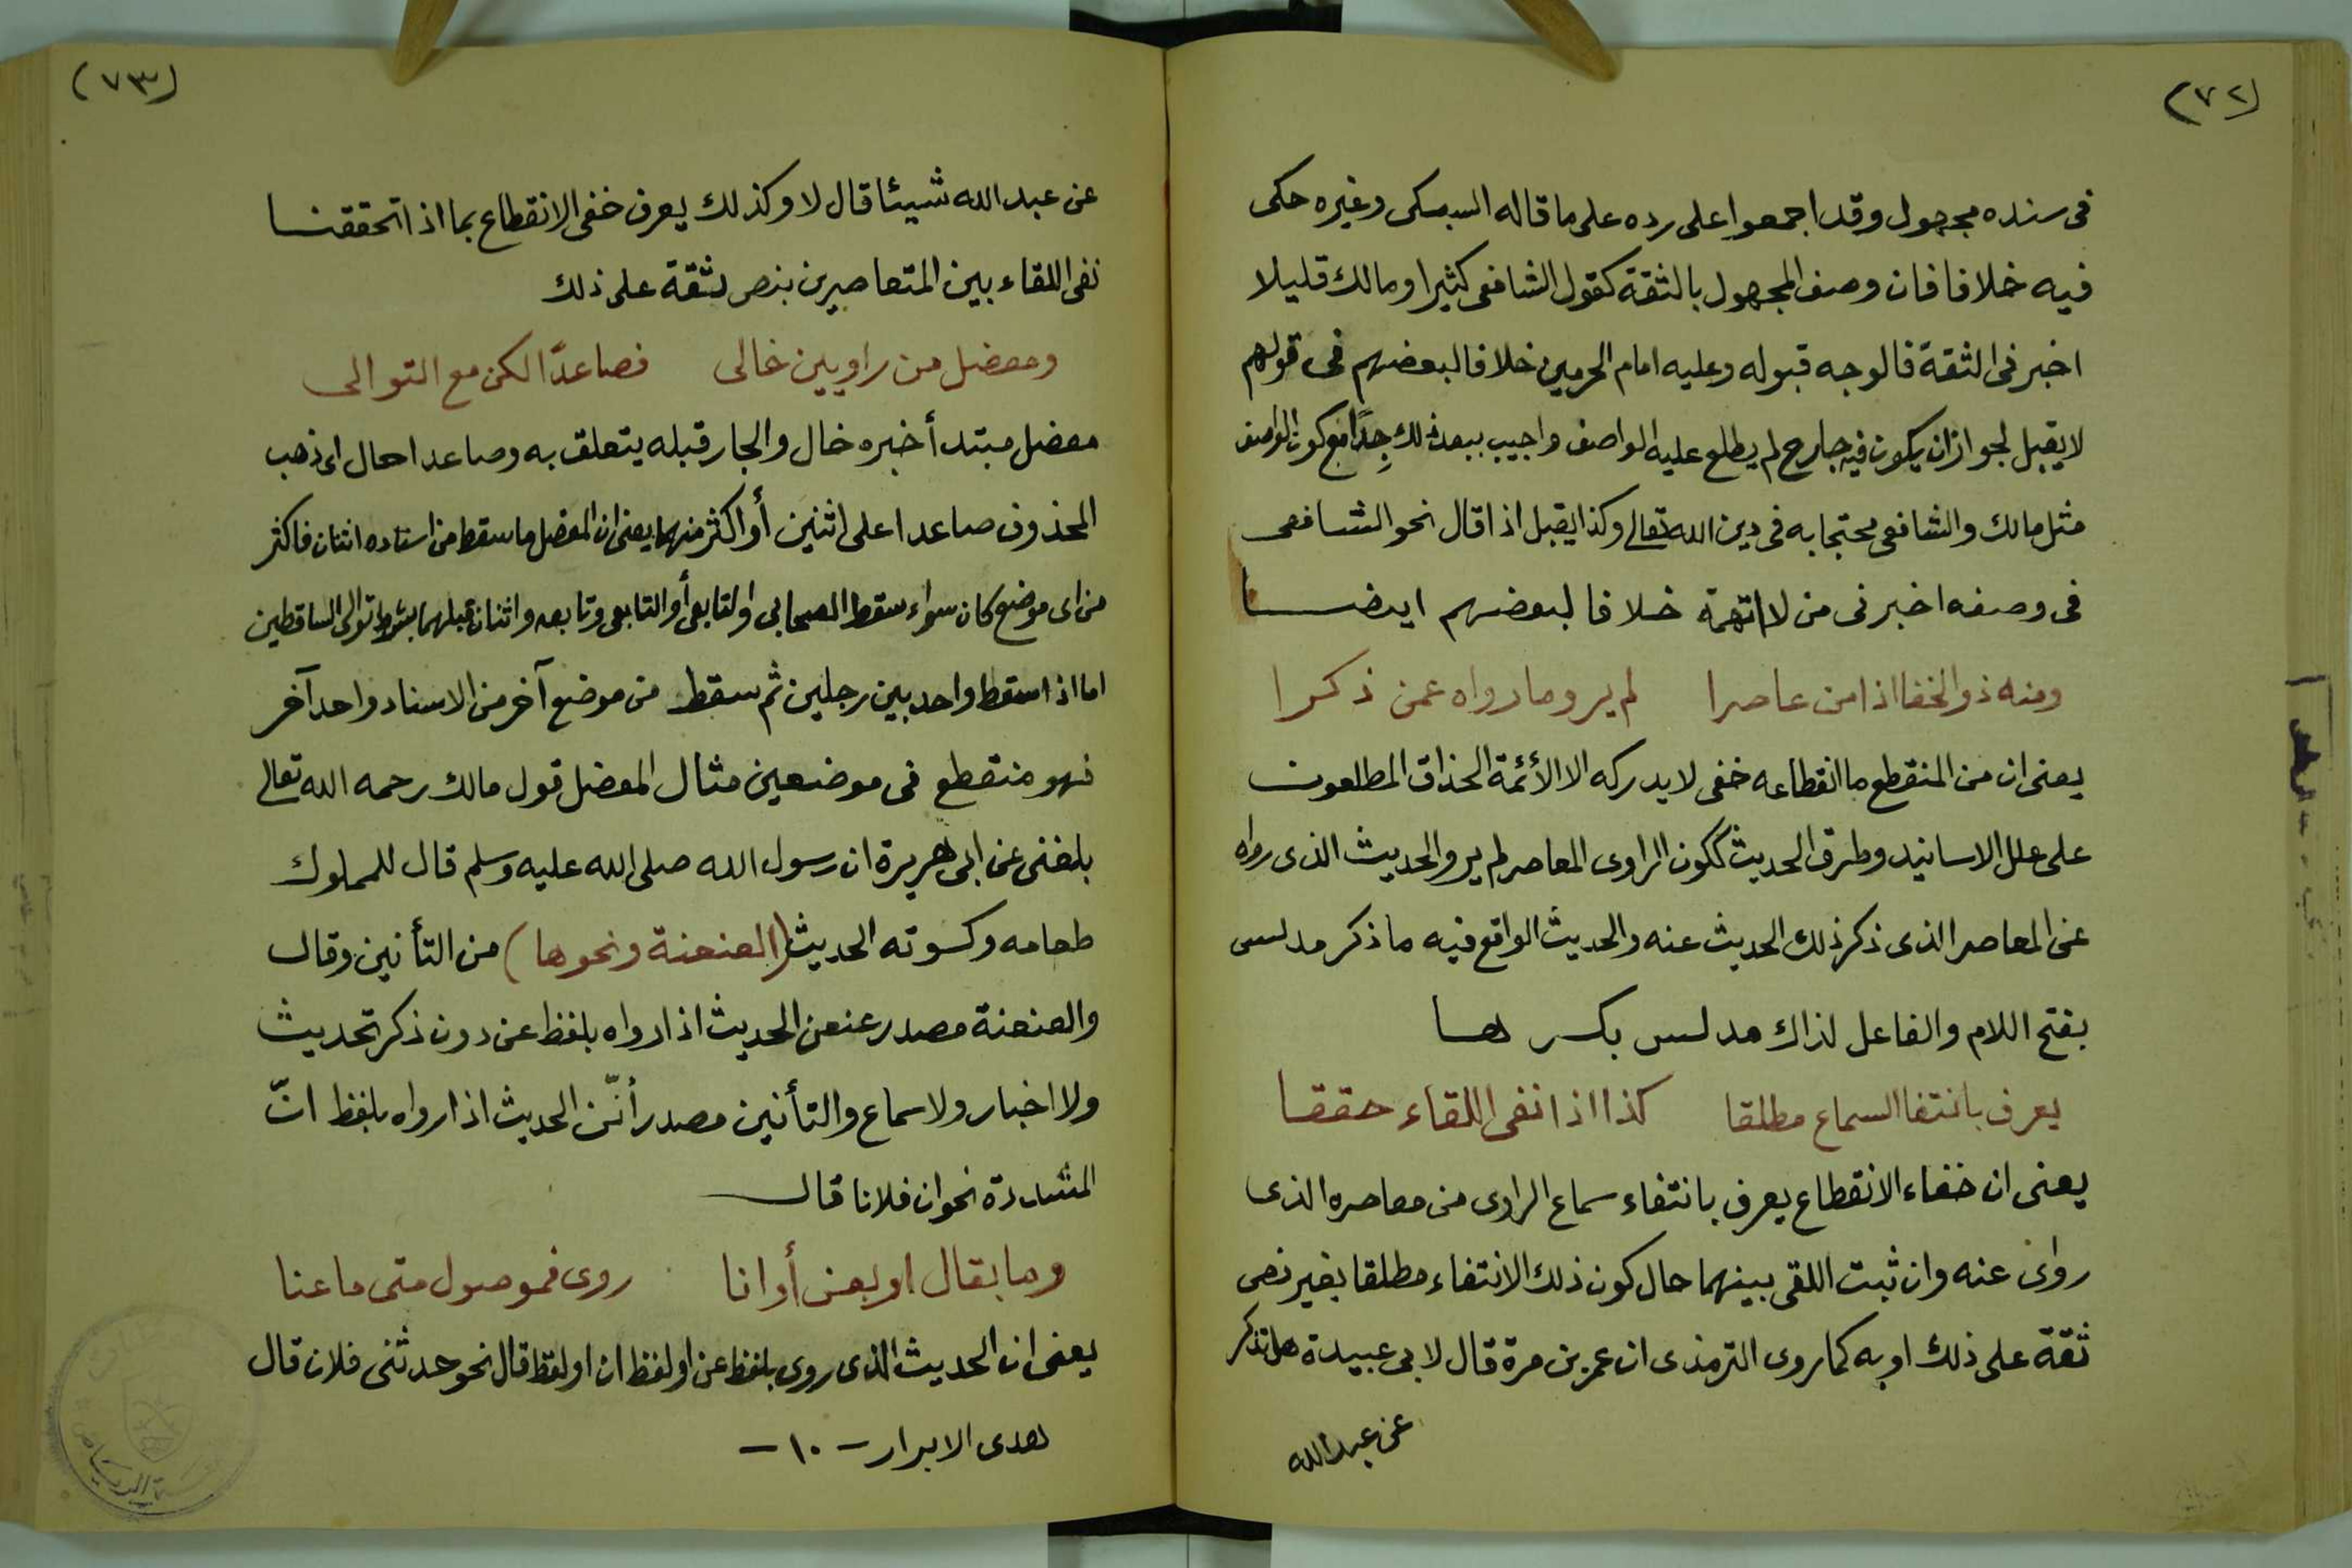 (٧٢)
فى سنده مجهول وقد اجمعوا على رده على ما قاله السبكى وغيره حكى
فيه خلافا فان وصف المجهول بالثقة كقول الشافعى كثيرا ومالك قليلا
اخبرنى الثقة فالوجه قبوله وعليه امام الحرمين خلافا لبعضهم فى قولهم
لا يقبل لجواز ان يكون فيه جارح لم يطلع عليه الواصف واجيب ببعد ذلك جِدًا مع كون الواصف
مثل مالك والشافعى محتجا به فى دين الله تعالى وكذا يقبل اذا قال نحو الشافعى
فى وصفه اخبرنى من لا اتهمة خلافا لبعضهم ايضا
ومنه ذو الخفا اذا من عاصرا لم يرو ما رواه عمن ذكرا
يعنى ان من المنقطع ما انقطاعه خفى لا يدركه الا الأئمة الحذاق المطلعون
على علل الاسانيد وطرق الحديث ككون الراوى المعاصر لم يرو الحديث الذى رواه
عن المعاصر الذى ذكر ذلك الحديث عنه والحديث الواقع فيه ما ذكر مدلس
بفتح اللام والفاعل لذاك مدلس بكسرها
يعرف بانتفا السماع مطلقا كذا اذا نفى اللقاء حققا
يعنى ان خفاء الانقطاع يعرف بانتفاء سماع الراوى من معاصره الذى
روى عنه وان ثبت اللقى بينهما حال كون ذلك الانتفاء مطلقا بغير نص
ثقة على ذلك او به كما روى الترمذى ان عمر بن مرة قال لابى عبيدة هل تذكر
عن عبد الله
(٧٣)
عن عبد الله شيئا قال لا وكذلك يعرف خفى الانقطاع بما اذا تحققنا
نفى اللقاء بين المتعاصرين بنص ثقة على ذلك
ومعضل من راويين خالى فصاعدًا لكن مع التوالى
معضل مبتدأ خبره خال والجار قبله يتعلق به وصاعدا حال اى ذهب
المحذوف صاعدا على اثنين أو اكثر منهما يعنى ان المعضل ما سقط من اسناده اثنان فاكثر
من اى موضع كان سواء سقط الصحابى والتابعى أو التابعى وتابعه واثنان قبلهما بشرط توالى الساقطين
اما اذا سقط واحد بين رجلين ثم سقط من موضع آخر من الاسناد واحد آخر
فهو منقطع فى موضعين مثال المعضل قول مالك رحمه الله تعالى
بلغنى عن ابى هريرة ان رسول الله صلى الله عليه وسلم قال للمملوك
طعامه وكسوته الحديث (العنعنة ونحوها) من التأنين وقال
والعنعنة مصدر عنعن الحديث اذا رواه بلفظ عن دون ذكر تحديث
ولا اخبار ولا سماع والتأنين مصدر أنّن الحديث اذا رواه بلفظ انّ
المشددة نحو ان فلانا قال
وما بقال او بعن أو انا روى فموصول متى ما عنا
يعنى ان الحديث الذى روى بلفظ عن او لفظ ان او لفظ قال نحو حدثنى فلان قال
هدى الابرار - ١٠ -